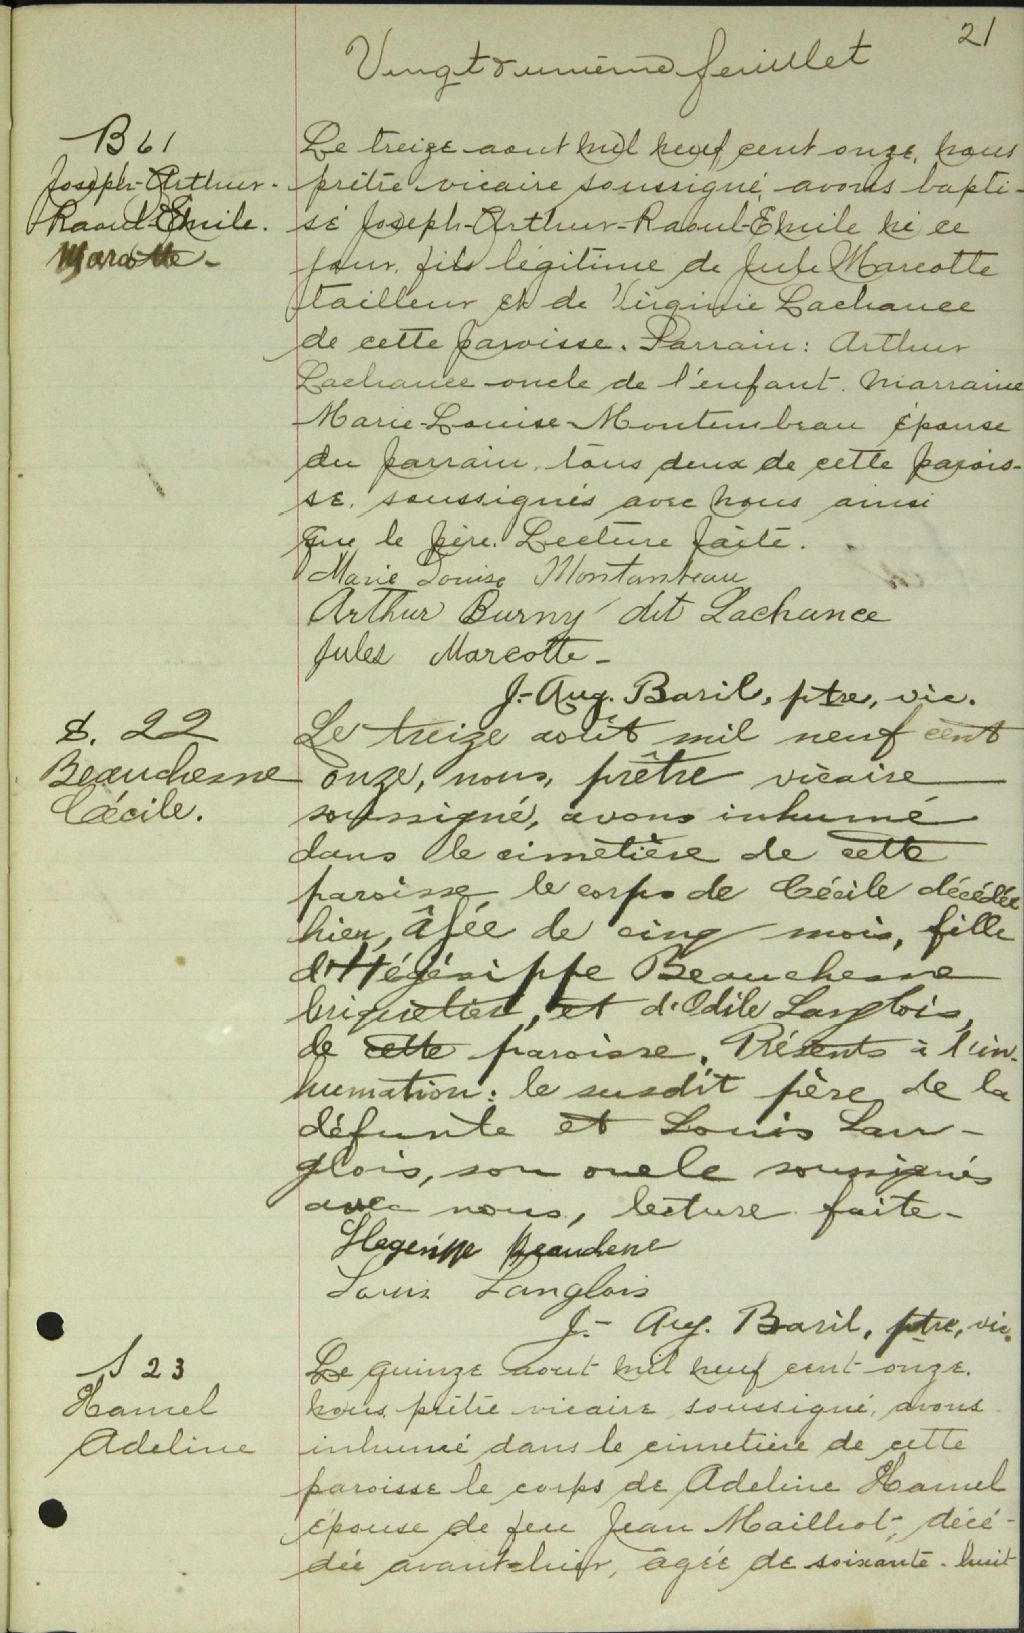 21
Vingt & unième feuillet
B 61
Joseph-Arthur-
Raoul-Emile.
Marcotte -
Le treize aout mil neuf cent onze, nous
prêtre vicaire soussigné, avons bapti-
sé Joseph-Arthur-Raoul-Emile né ce
jour, fils légitime de Jule Marcotte
tailleur et de Virginie Lachance
de cette paroisse. Parrain: Arthur
Lachance oncle de l'enfant. Marraine
Marie-Louise-Montembeau épouse
du parrain, tous deux de cette parois-
se, soussignés avec nous ainsi
que le père. Lecture faite.
Marie Louise Montambeau
Arthur Burny dit Lachance
Jules Marcotte -
J.-Aug. Baril, ptre, vic.
S. 22
Beauchesne
Cécile.
Le treize août mil neuf cent
onze, nous, prêtre vicaire
soussigné, avons inhumé
dans le cimetière de cette
paroisse le corps de Cécile décédée
hier, âgée de cinq mois, fille
d'Hégésippe Beauchesne
briquetier, et d'Odile Langlois,
de cette paroisse. Présents à l'in-
humation: le susdit père de la
défunte et Louis Lan-
glois, son oncle soussignés
avec nous, lecture faite -
Hegesippe Beauchene
Louis Langlois
J.- Aug. Baril, ptre, vic.
S 23
Hamel
Adeline
Le quinze aout mil neuf cent onze.
nous, prêtre vicaire soussigné, avons
inhumé dans le cimetière de cette
paroisse le corps de Adeline Hamel
épouse de feu Jean Mailhot, décé-
dée avant-hier, âgée de soixante-huit